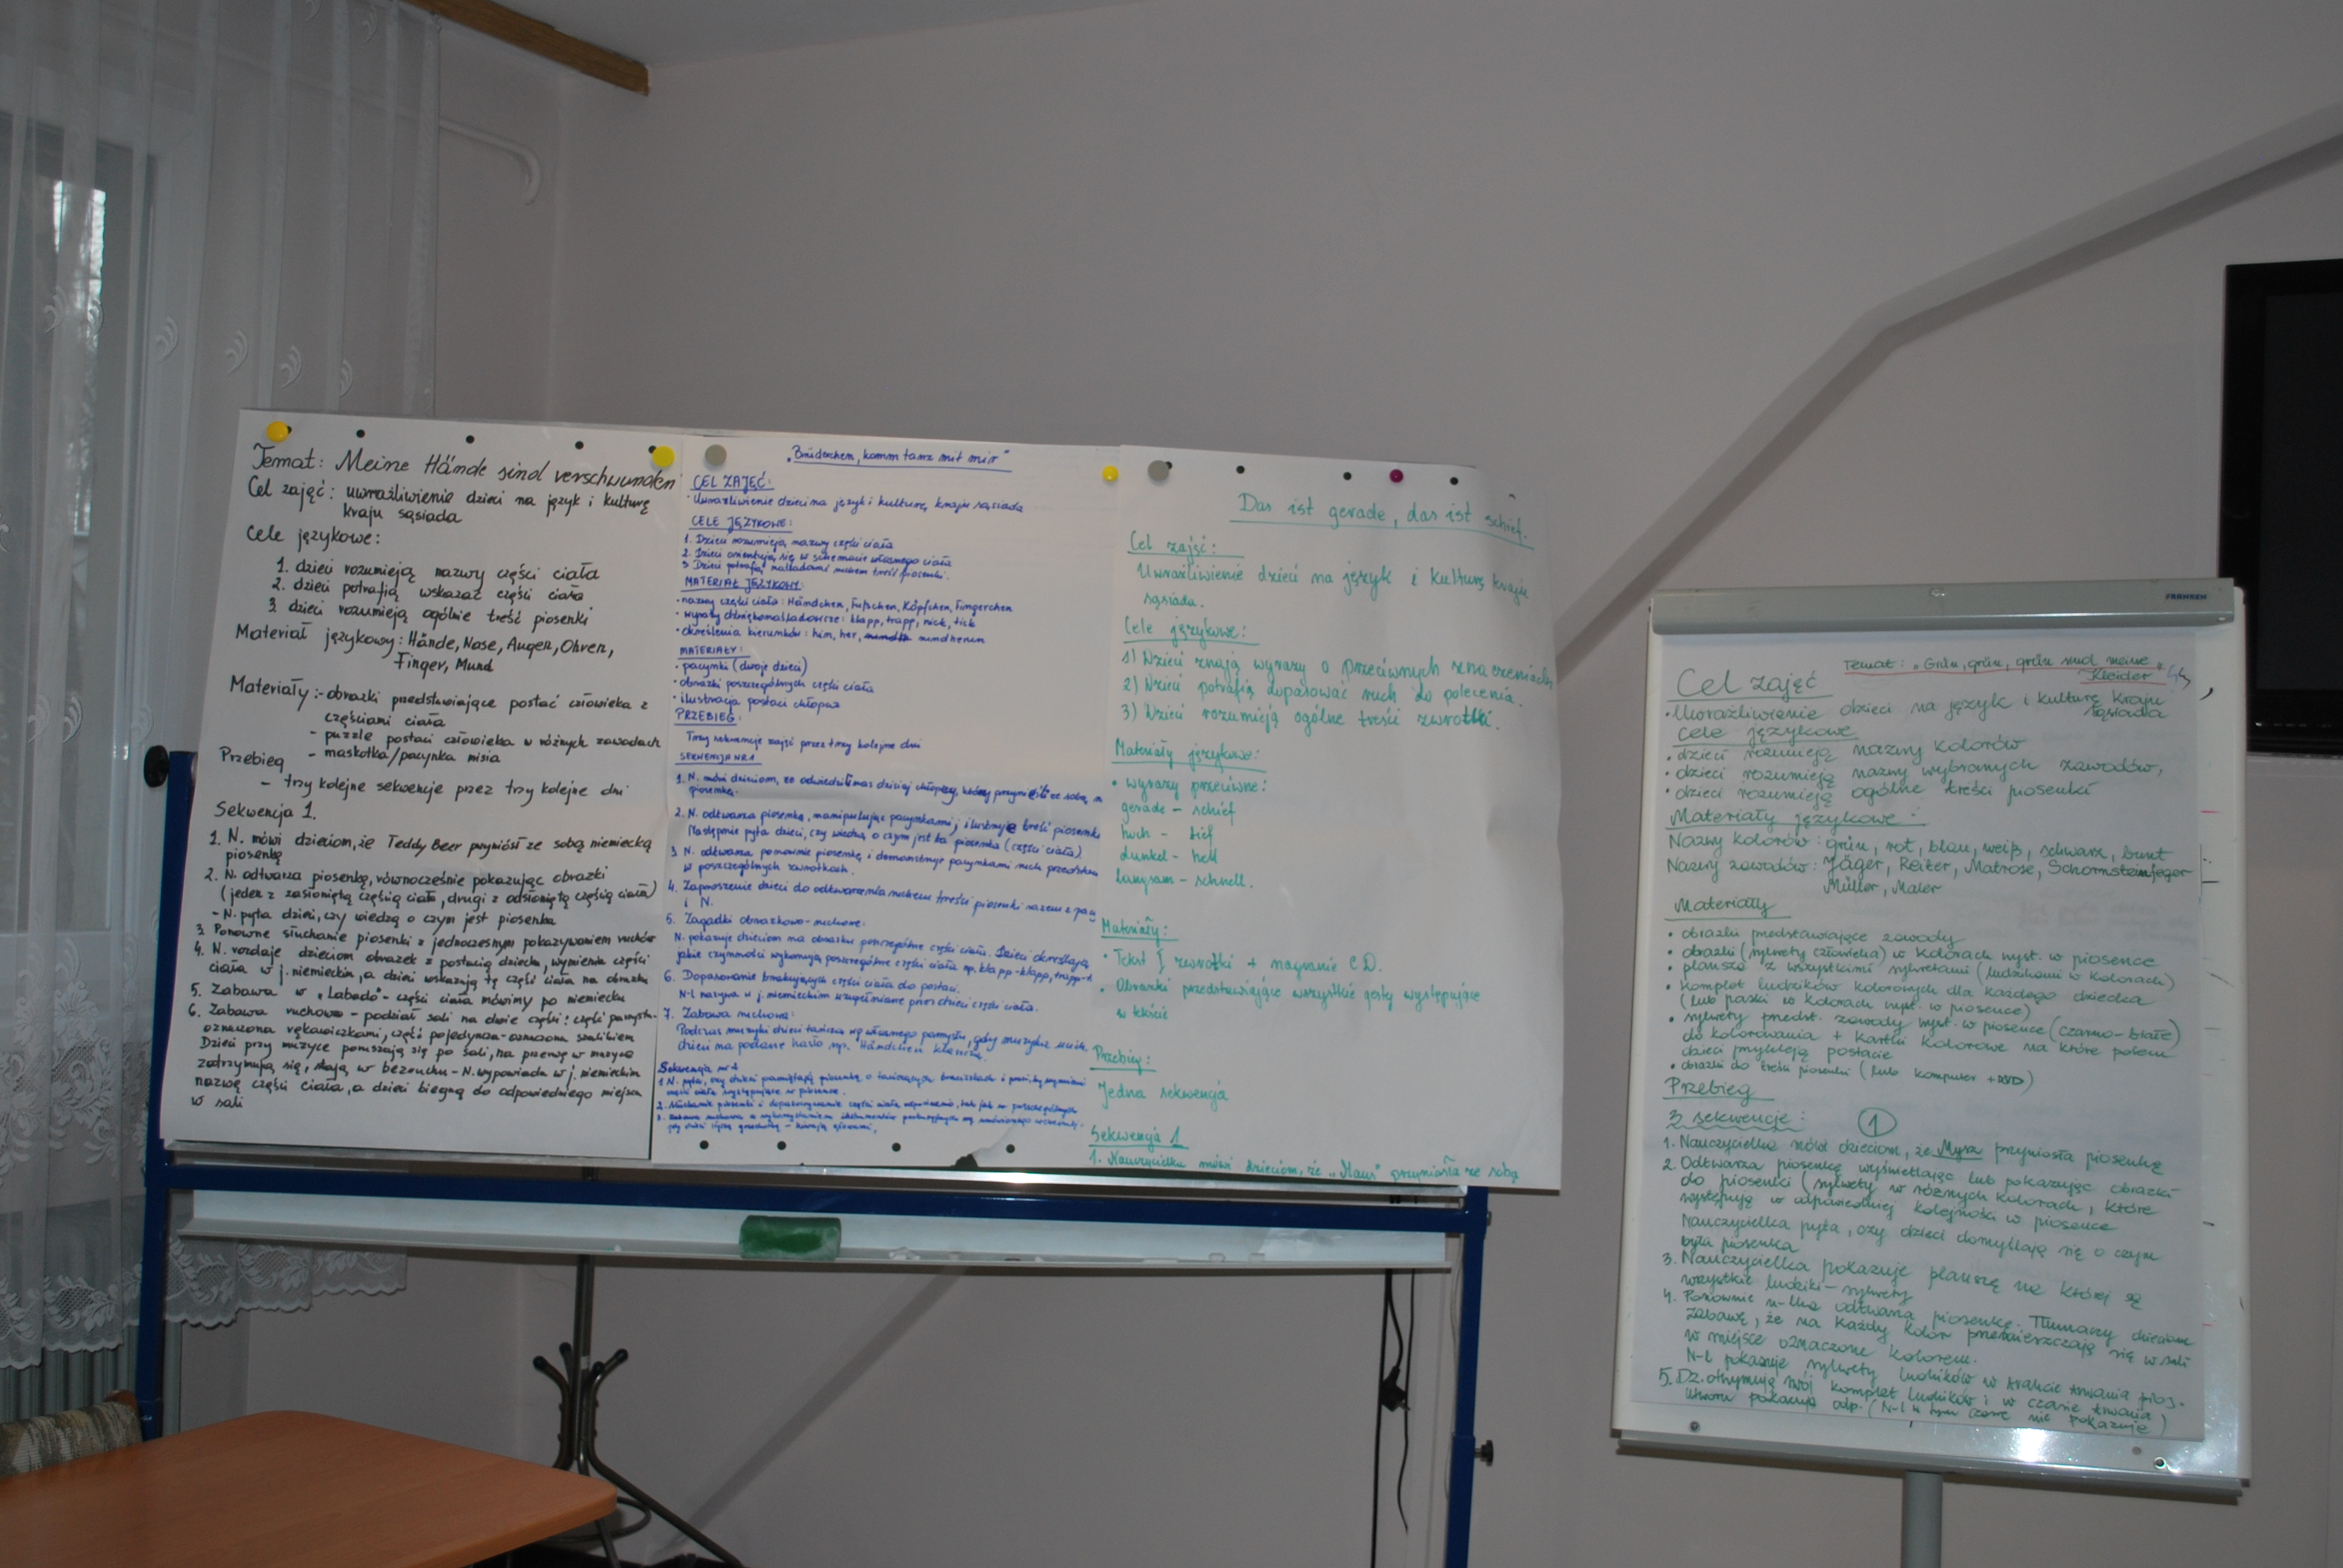 Temat: Meine Hände sind verschwunden
Cel zajęć: uwrażliwienie dzieci na język i kulturę
kraju sąsiada
Cele językowe:
1. dzieci rozumieją nazwy części ciała
2. dzieci potrafią wskazać części ciała
3. dzieci rozumieją ogólnie treść piosenki
Materiał językowy: Hände, Nase, Augen, Ohren,
Finger, Mund
Materiały: - obrazki przedstawiające postać człowieka z
częściami ciała
- puzzle postaci człowieka w różnych zawodach
- maskotka/pacynka misia
Przebieg
- trzy kolejne sekwencje przez trzy kolejne dni
Sekwencja 1.
1. N. mówi dzieciom, że Teddy Beer przyniósł ze sobą niemiecką
piosenkę
2. N. odtwarza piosenkę, równocześnie pokazując obrazki
(jeden z zasłoniętą częścią ciała, drugi z odsłoniętą częścią ciała)
- N. pyta dzieci, czy wiedzą o czym jest piosenka
3. Ponowne słuchanie piosenki z jednoczesnym pokazywaniem ruchów
4. N. rozdaje dzieciom obrazek z postacią dziecka, wymienia części
ciała w j. niemieckim, a dzieci wskazują tę część ciała na obrazku
5. Zabawa w "Labado" - części ciała mówimy po niemiecku
6. Zabawa ruchowa - podział sali na dwie części: część parzysta-
oznaczona rękawiczkami, część pojedyncza-oznaczona szalikiem
Dzieci przy muzyce poruszają się po sali, na przerwę w muzyce
zatrzymują się, stają w bezruchu - N. wypowiada w j. niemieckim
nazwę części ciała, a dzieci biegną do odpowiedniego miejsca
w sali
"Brüderchen, komm tanz mit mir"
CEL ZAJĘĆ:
· Uwrażliwienie dzieci na język i kulturę kraju sąsiada
CELE JĘZYKOWE:
1. Dzieci rozumieją nazwy części ciała
2. Dzieci orientują się w schemacie własnego ciała
3 Dzieci potrafią naśladować ruchem treść piosenki.
MATERIAŁ JĘZYKOWY:
· nazwy części ciała: Händchen, Füßchen, Köpfchen, Fingerchen
· wyrazy dźwiękonaśladowcze: klapp, trapp, nick, tick
· określenia kierunków: hin, her, rundherum
MATERIAŁY:
· pacynki (dwoje dzieci)
· obrazki poszczególnych części ciała
· ilustracja postaci chłopca
PRZEBIEG:
Trzy sekwencje zajęć przez trzy kolejne dni
SEKWENCJA NR 1
1. N. mówi dzieciom, że odwiedzili nas dzisiaj chłopcy, którzy przynieśli ze sobą
piosenkę.
2. N. odtwarza piosenkę, manipulując pacynkami, ilustruje treść piosenki
Następnie pyta dzieci, czy wiedzą o czym jest ta piosenka (części ciała).
3 N. odtwarza ponownie piosenkę i demonstruje pacynkami ruch
w poszczególnych zwrotkach.
4. Zaproszenie dzieci do odtwarzania ruchem treści piosenki razem z
i N.
5. Zagadki obrazkowo-ruchowe:
N. pokazuje dzieciom na obrazku poszczególne części ciała. Dzieci określają
jakie czynności wykonują poszczególne części ciała np. klapp-klapp, trapp-t
6. Dopasowanie brakujących części ciała do postaci.
N-l nazywa w j. niemieckim uzupełniane przez dzieci części ciała.
7. Zabawa ruchowa:
Podczas muzyki dzieci tańczą wg własnego pomysłu, gdy muzyka
dzieci na podane hasło np. Händchen
Sekwencja nr 2
1 N. pyta, czy dzieci pamiętają piosenkę o tańczących
części ciała występujące w piosence.
2. Słuchanie piosenki i
Das ist gerade, das ist schief.
Cel zajęć:
Uwrażliwienie dzieci na język i kulturę kraju
sąsiada.
Cele językowe:
1) Dzieci znają wyrazy o przeciwnych znaczeniach
2) Dzieci potrafią dopasować ruch do polecenia.
3) Dzieci rozumieją ogólne treści zwrotki.
Materiały językowe:
• wyrazy przeciwne:
gerade - schief
hoch - tief
dunkel - hell
langsam - schnell.
Materiały:
• Tekst zwrotki + nagranie CD.
• Obrazki przedstawiające wszystkie gesty występujące
w tekście
Przebieg:
Jedna sekwencja
Sekwencja 1
1. Nauczycielka mówi dzieciom, że "Maus" przyniosła ze sobą
FRANKEN
Temat: "Grün, grün, grün sind meine
Kleider"
Cel zajęć
• Uwrażliwienie dzieci na język i kulturę kraju
sąsiada
Cele językowe
• dzieci rozumieją nazwy kolorów
• dzieci rozumieją nazwy wybranych zawodów,
• dzieci rozumieją ogólne treści piosenki
Materiały językowe:
Nazwy kolorów: grün, rot, blau, weiß, schwarz, bunt
Nazwy zawodów: Jäger, Reiter, Matrose, Schornsteinfeger
Müller, Maler
Materiały
• obrazki przedstawiające zawody
• obrazki (sylwety człowieka) w kolorach wyst. w piosence
• plansza z wszystkimi sylwetami (ludzikami w kolorach)
• komplet ludzików kolorowych dla każdego dziecka
(lub paski w kolorach wyst. w piosence)
• sylwety przedst. zawody wyst. w piosence (czarno-białe)
do kolorowania + kartki kolorowe na które potem
dzieci przykleją postacie
• obrazki do treści piosenki (lub komputer + DVD)
Przebieg
3 sekwencje: 1
1. Nauczycielka mówi dzieciom, że Mysz przyniosła piosenkę
2. Odtwarza piosenkę wyświetlając lub pokazując obrazki
do piosenki (sylwety w różnych kolorach, które
występują w odpowiedniej kolejności w piosence
Nauczycielka pyta, czy dzieci domyślają się o czym
była piosenka
3. Nauczycielka pokazuje planszę na której są
wszystkie ludziki - sylwety
4. Ponownie n-lka odtwarza piosenkę. Tłumaczy dzieciom
zabawę, że na każdy kolor przemieszczają się w sali
w miejsce oznaczone kolorem.
N-l pokazuje sylwety ludzików w trakcie trwania pios.
5. Dz. otrzymują swój komplet ludzików i w czasie trwania
utworu pokazują odp. (N-l w tym czasie nie pokazuje)